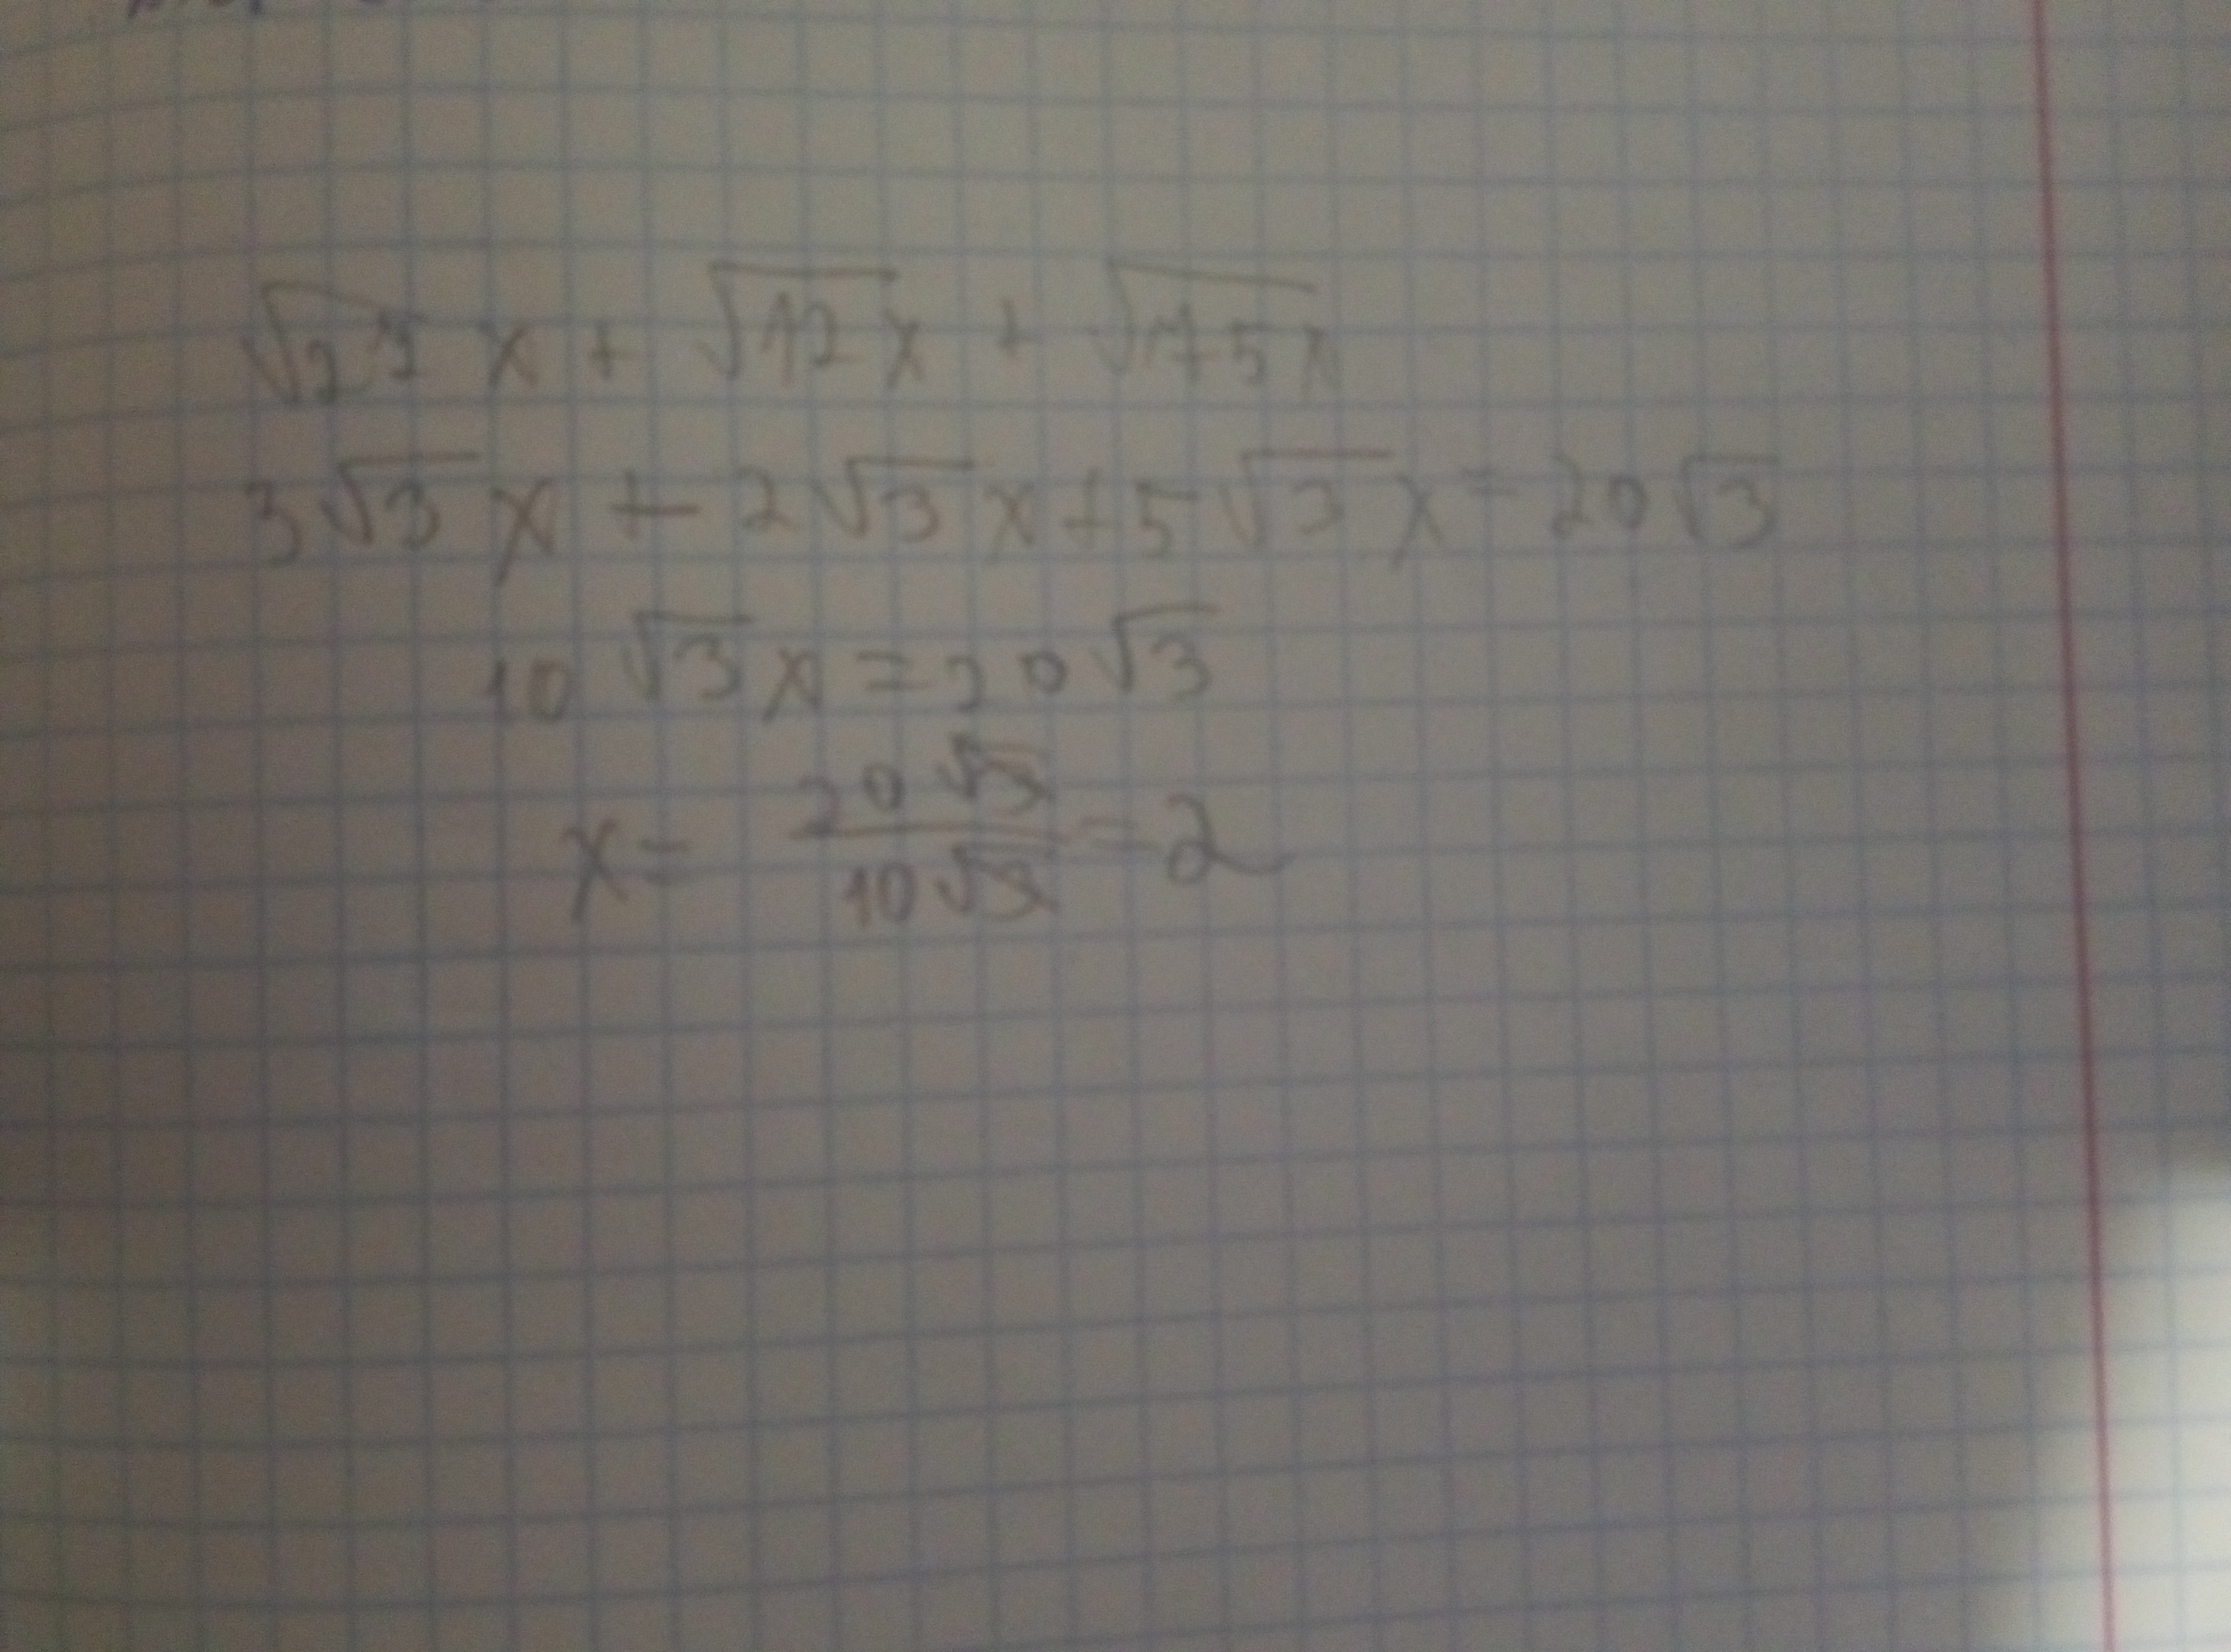 √27 x + √12 x + √75 x
3√3 x + 2√3 x + 5√3 x = 20√3
10√3 x = 20√3
x = 20√3 / 10√3 = 2